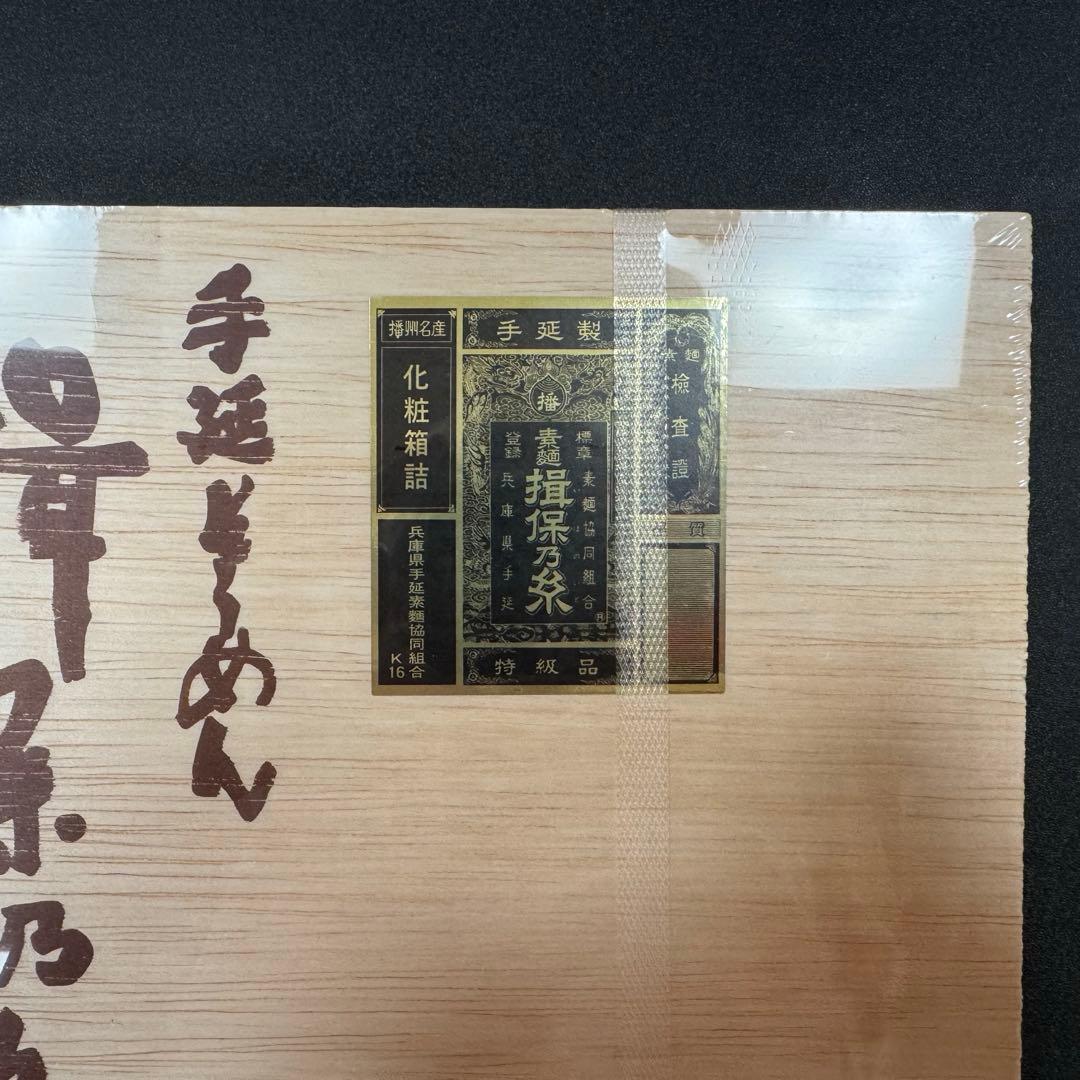 手延そうめん
揖保乃糸
播州名産
化粧箱詰
兵庫県手延素麺協同組合
K16
手延製
播
標章
登録
素麺
揖保乃糸
素麺協同組合
兵庫県手延
特級品
素麺
検査證
質